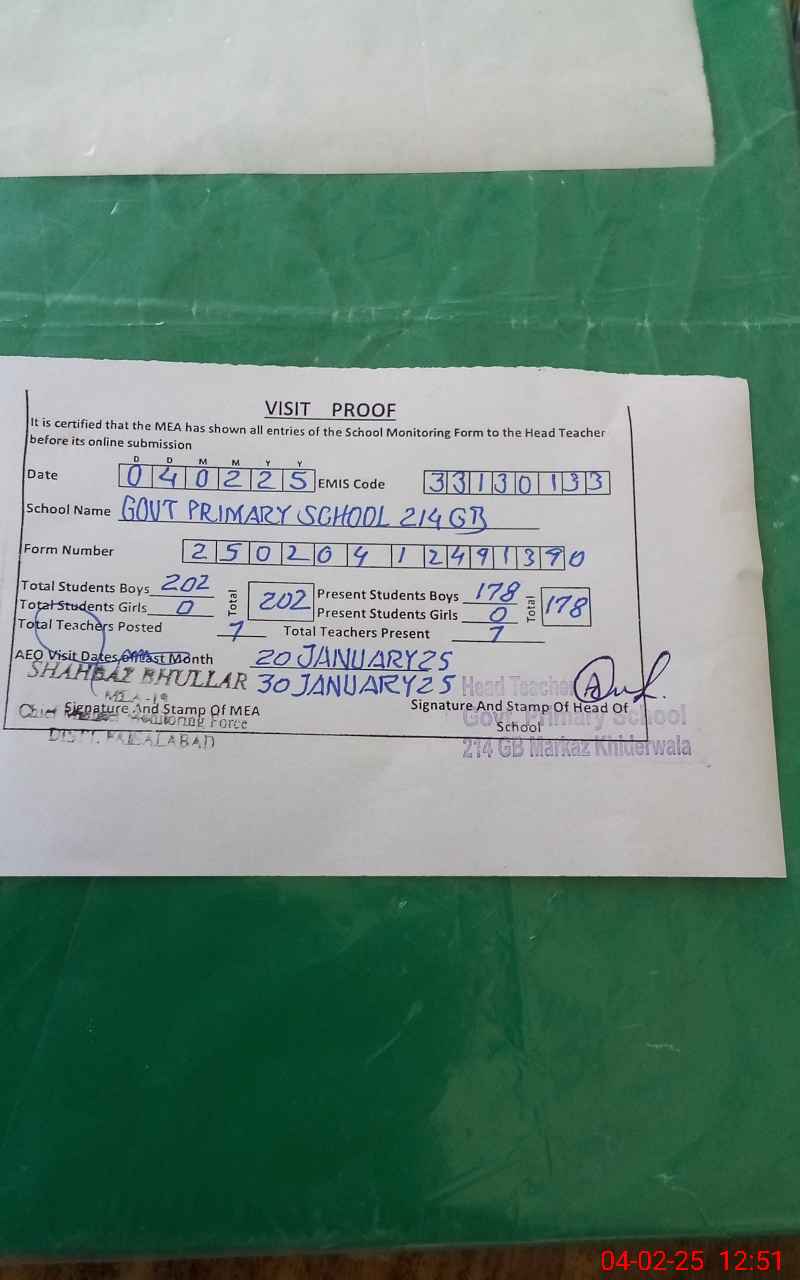 VISIT PROOF
It is certified that the MEA has shown all entries of the School Monitoring Form to the Head Teacher
before its online submission
D D M M Y Y
Date 0 4 0 2 2 5 EMIS Code 3 3 1 3 0 1 3 3
School Name GOVT PRIMARY SCHOOL 214 GB
Form Number 2 5 0 2 0 4 1 2 4 9 1 3 9 0
Total Students Boys 202 Total 202 Present Students Boys 178 Total 178
Total Students Girls 0 Present Students Girls 0
Total Teachers Posted 7 Total Teachers Present 7
AEO Visit Dates of Last Month 20 JANUARY 25
SHAHBAZ BHULLAR 30 JANUARY 25 Head Teacher
Signature And Stamp Of MEA Signature And Stamp Of Head Of
School
Chief Monitoring Force Govt. Primary School
DISTT. FAISALABAD 214 GB Markaz Khiderwala
04-02-25 12:51